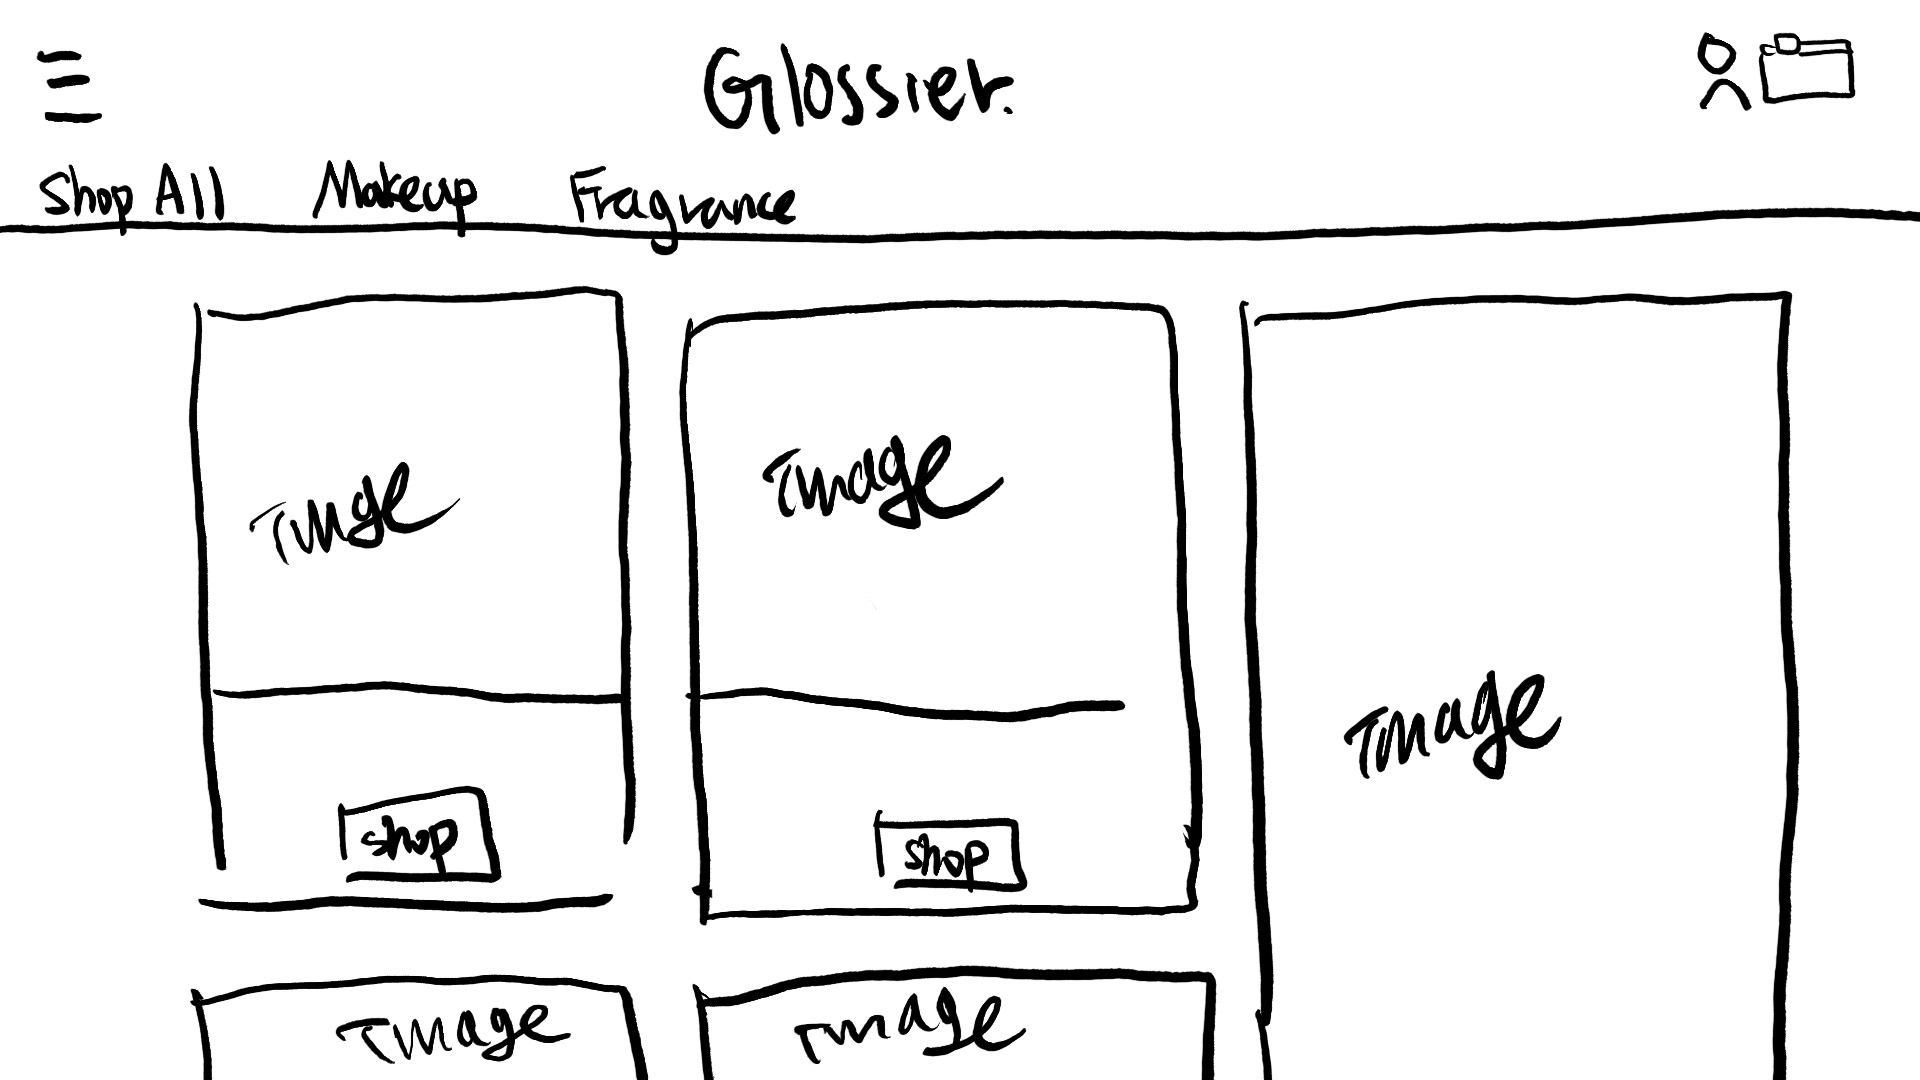 Glossier.
Shop All Makeup Fragrance
Image
Image
Image
shop
shop
Image
Image